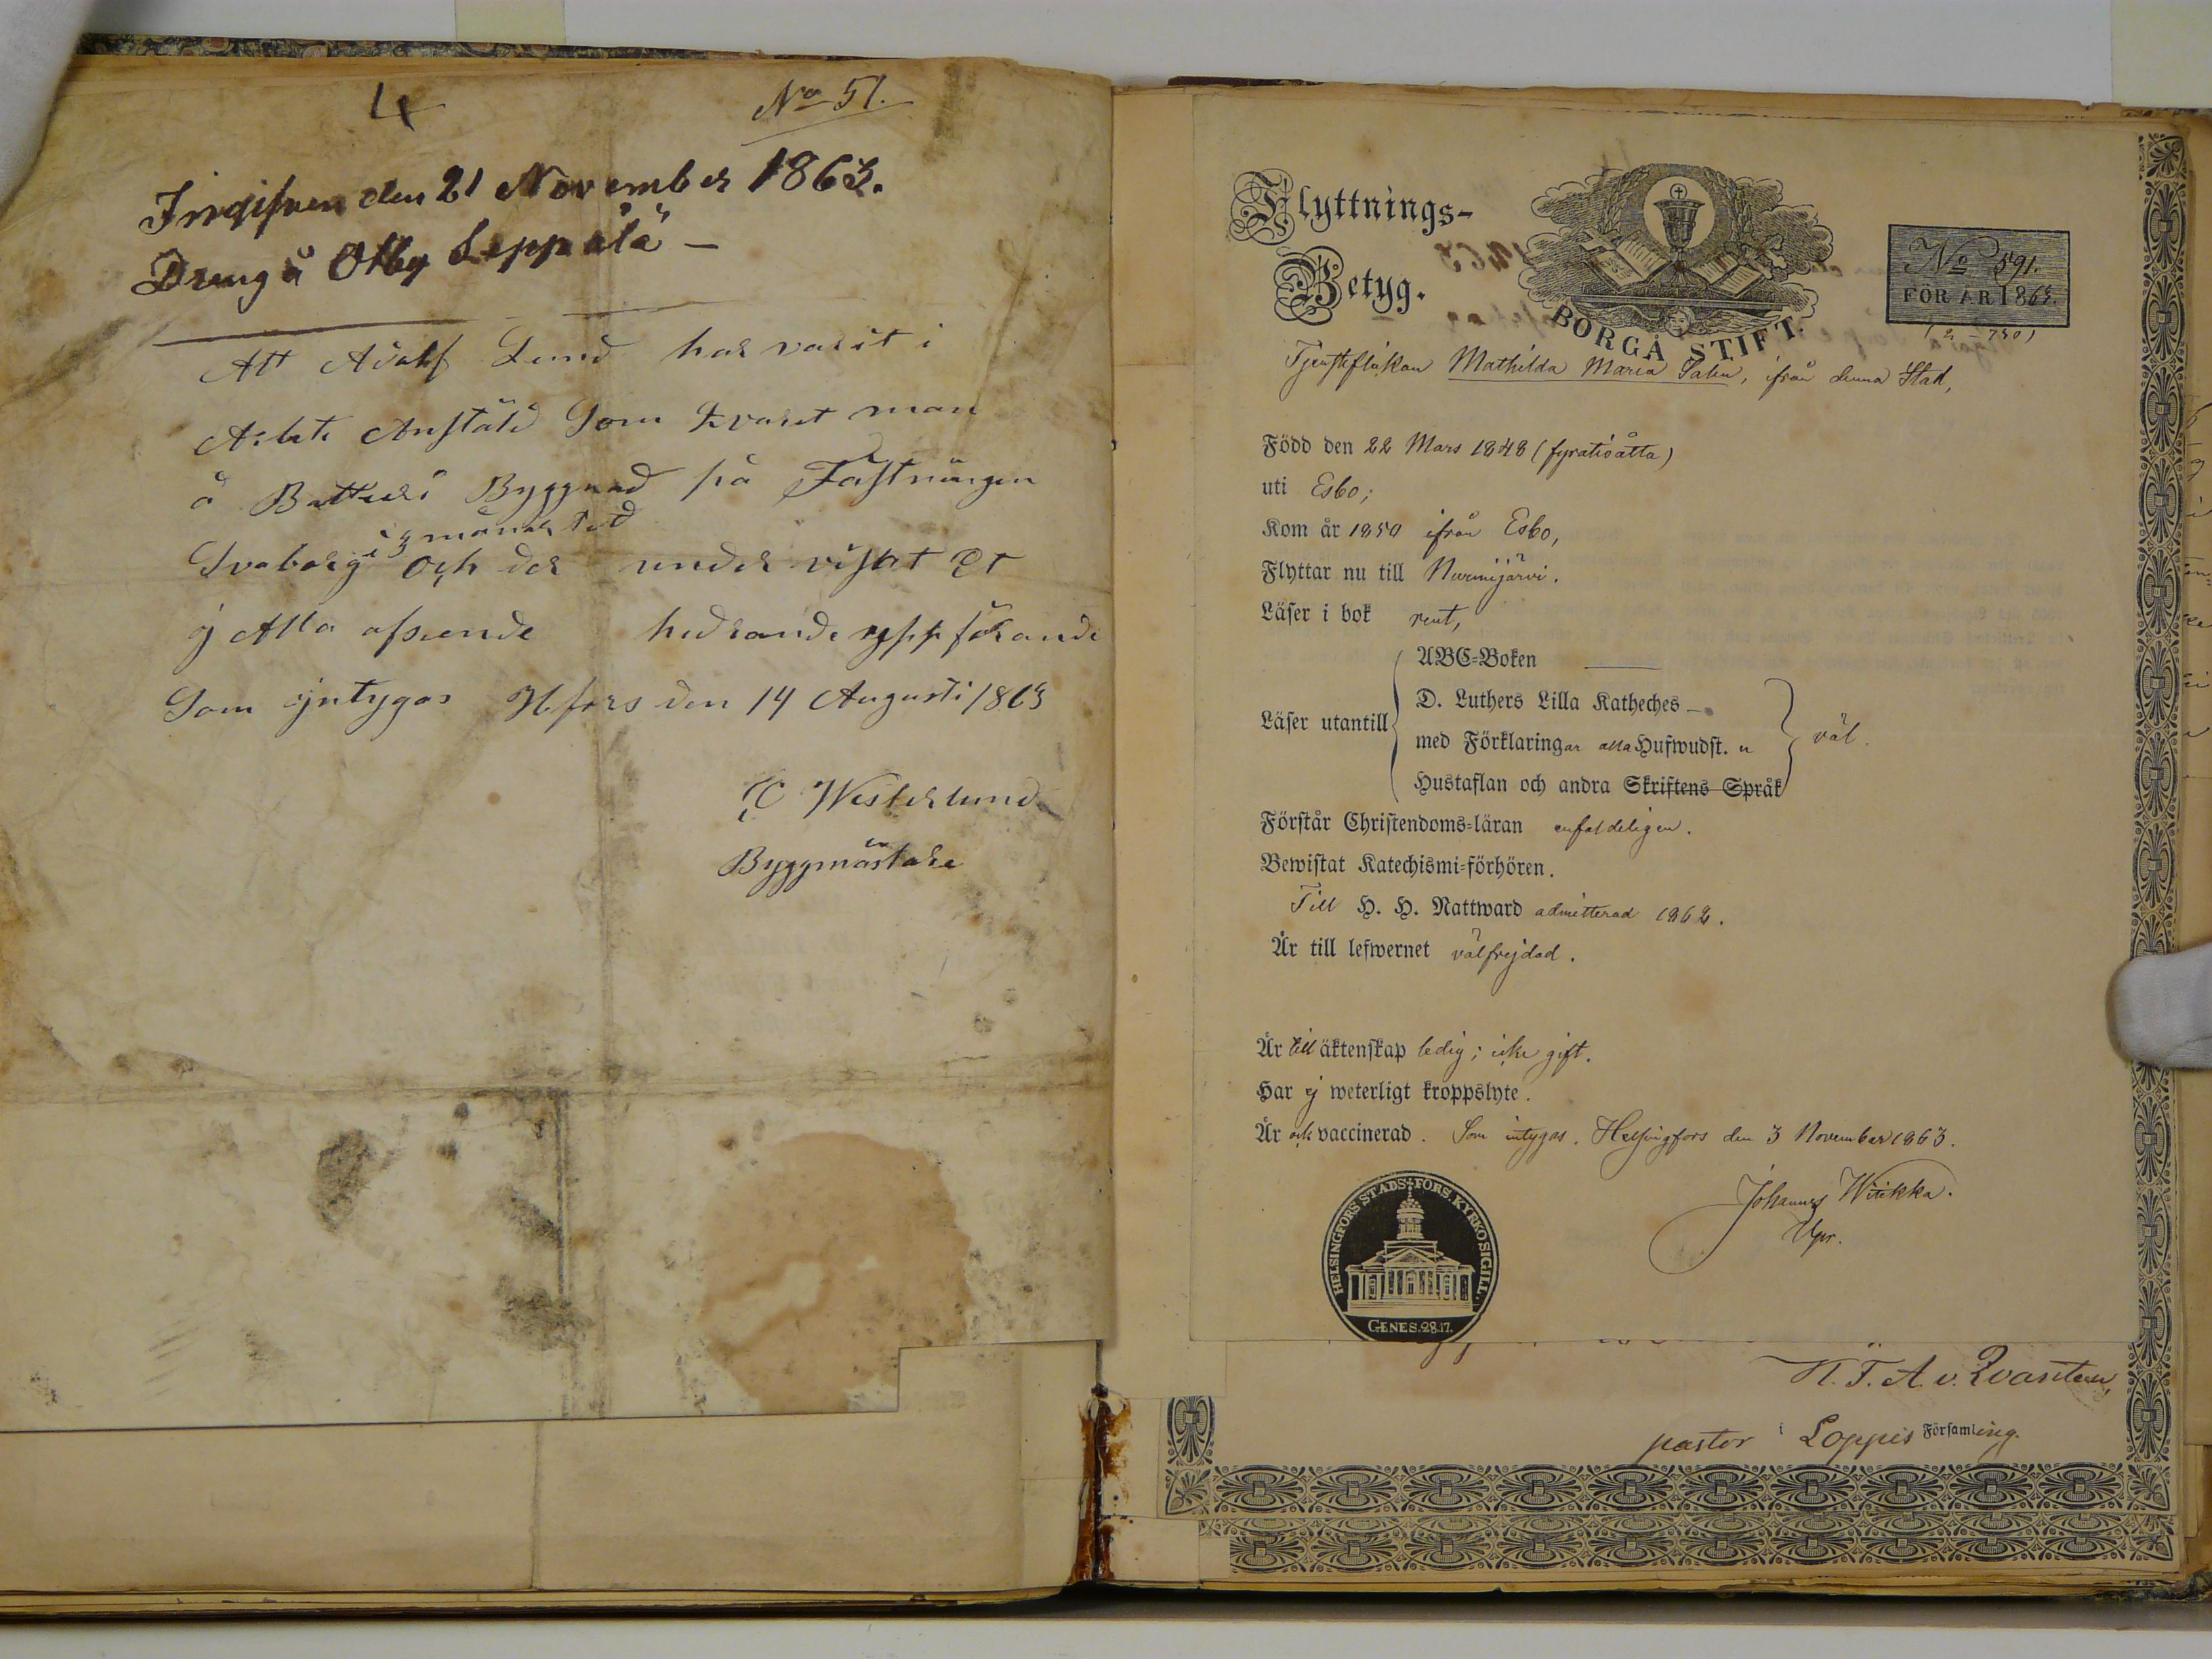 4
No 51.
Ingifven den 21 November 1863.
Dreng å Otby Leppälä –
Att Adolf Lund har varit i
Arbete Anstäld Som Tvaret man
å Batteri Byggnad på Fästningen
i 3 månar tid
Svaborg och der under visat Et
ij Alla afseende hedrande uppförande
Som ijntygas Hfors den 14 Augusti 1863
C Westerlund
Byggmästare
Flyttnings-
Betyg.
BORGÅ STIFT.
No 591.
FÖR ÅR 1863.
Tjensteflickan Mathilda Maria, ifrån denna Stad,
Född den 22 Mars 1848 (fyratioåtta)
uti Esbo;
Kom år 1850 ifrån Esbo,
Flyttar nu till Nurmijärvi.
Läser i bok rent,
ABC-Boken
D. Luthers Lilla Katheches
Läser utantill
med Förklaringar alla Hufwudst. u
väl.
Hustaflan och andra Skriftens Språk
Förstår Christendoms-läran enfaldeligen.
Bewistat Katechismi-förhören.
Till H. H. Nattward admitterad 1862.
Är till lefwernet välfrejdad.
Är till äktenskap ledig; icke gift.
Har ej weterligt kroppslyte.
Är ock vaccinerad. Som intygas. Helsingfors den 3 November 1863.
Johannes Witikka.
Vpr.
HELSINGFORS STADS FÖRS. KYRKOSIGILL.
GENES. 28.17.
N. F. A. v. Qvanten,
pastor i Loppis Församling.